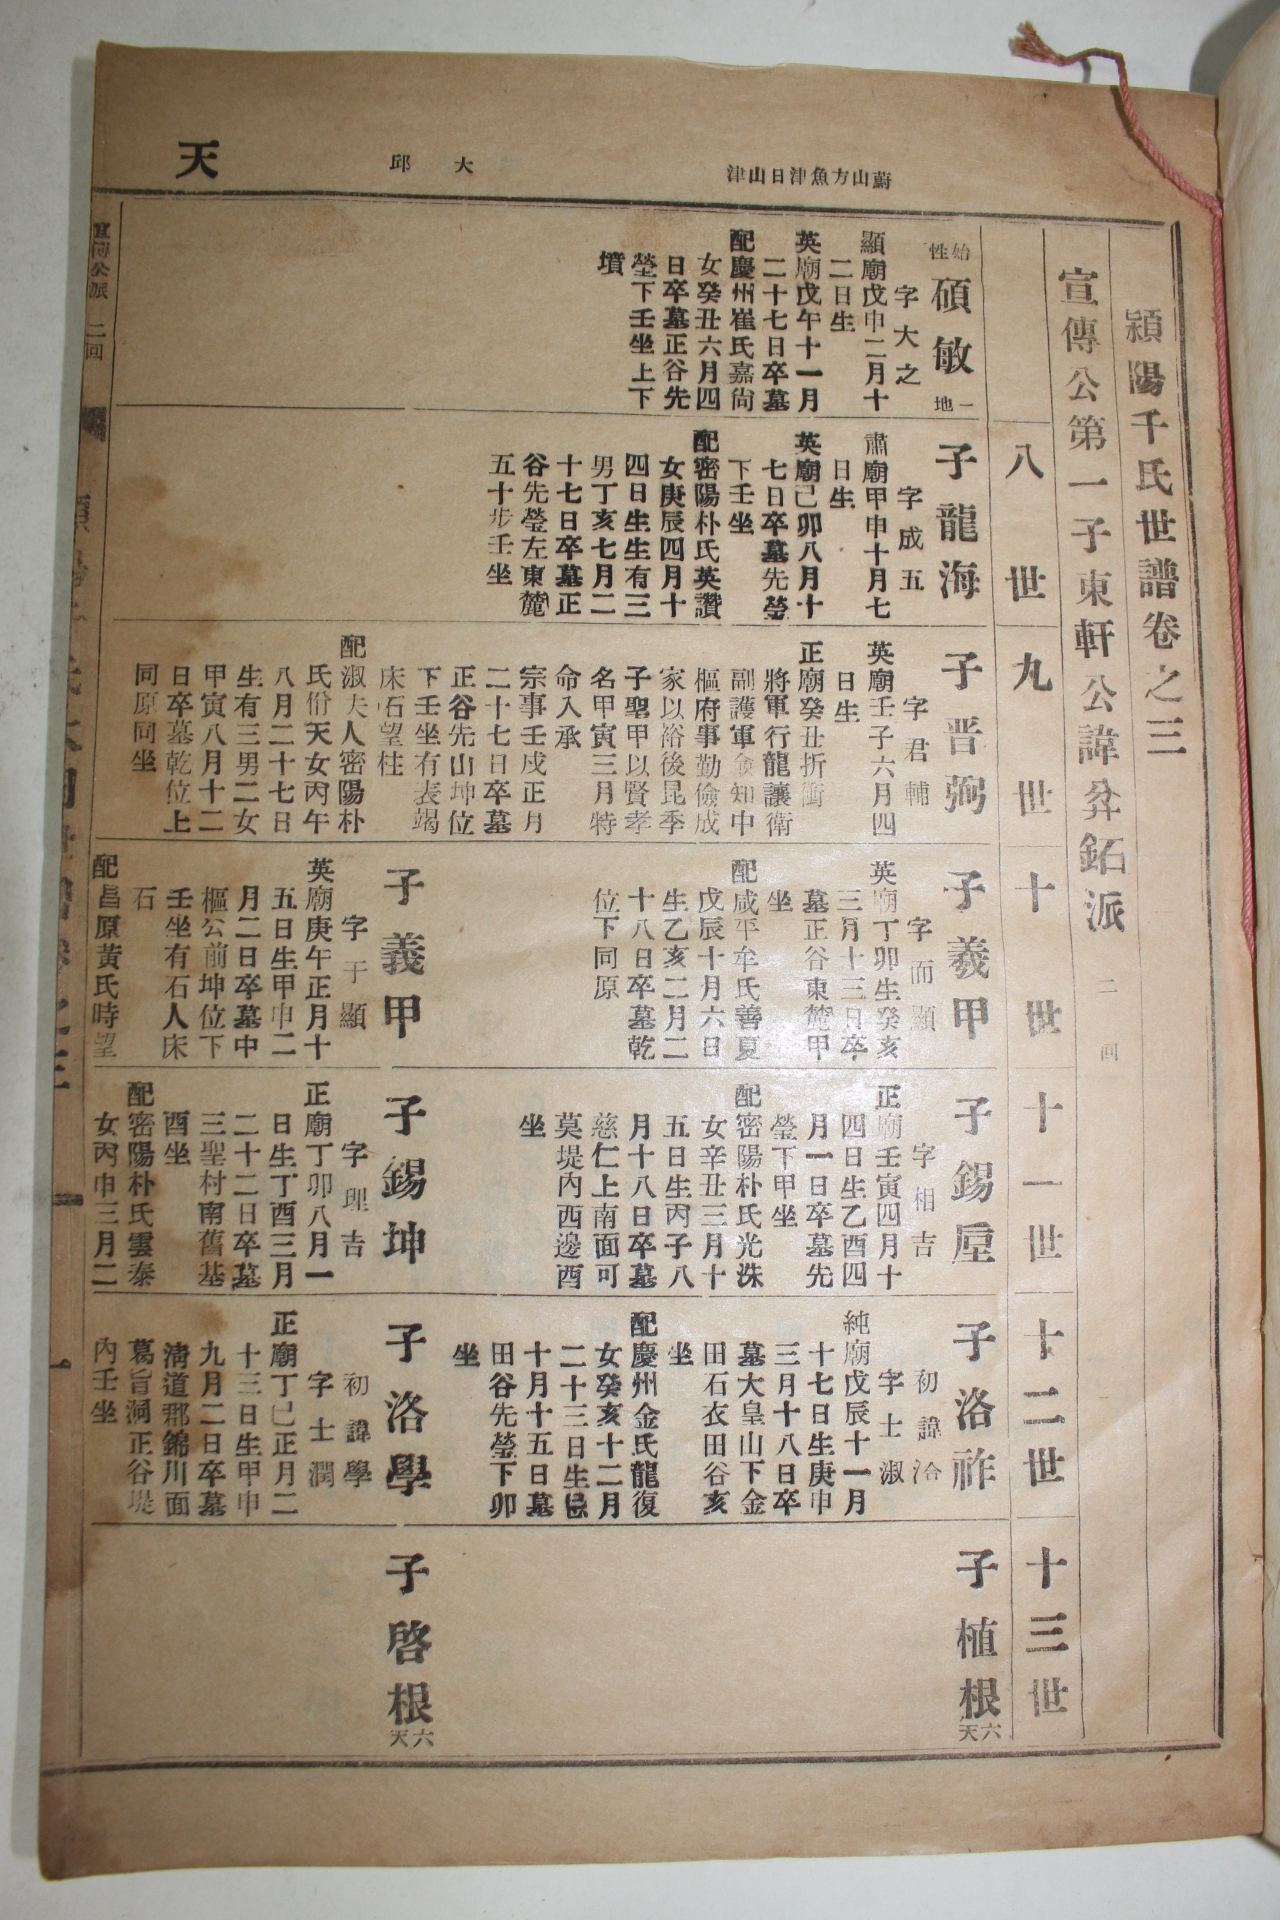 蔚山方魚津日山津
大邱
天
潁陽千氏世譜卷之三
宣傳公第一子東軒公諱弅鉐派 二回
八世
九世
十世
十一世
十二世
十三世
始性
碩敏
一地
字大之
顯廟戊申二月十
二日生
英廟戊午十一月
二十七日卒墓
配慶州崔氏嘉尙
女癸丑六月四
日卒墓正谷先
塋下壬坐上下
墳
子龍海
字成五
肅廟甲申十月七
日生
英廟己卯八月十
七日卒墓先塋
下壬坐
配密陽朴氏英讚
女庚辰四月十
四日生生有三
男丁亥七月二
十七日卒墓正
谷先塋左東麓
五十步壬坐
子晋弼
字君輔
英廟壬子六月四
日生
正廟癸丑折衝
將軍行龍讓衛
副護軍僉知中
樞府事勤儉成
家以裕後昆季
子聖甲以賢孝
名甲寅三月特
命入承
宗事壬戌正月
二十七日卒墓
正谷先山坤位
下壬坐有表竭
床石望柱
配淑夫人密陽朴
氏俏天女丙午
八月二十七日
生有三男二女
甲寅八月十二
日卒墓乾位上
同原同坐
子羲甲
字而顯
英廟丁卯生癸亥
三月十三日卒
墓正谷東麓甲
坐
配咸平牟氏善夏
戊辰十月六日
生乙亥二月二
十八日卒墓乾
位下同原
子義甲
字于顯
英廟庚午正月十
五日生甲申二
月二日卒墓中
樞公前坤位下
壬坐有石人床
石
配昌原黃氏時望
子錫垕
字相吉
正廟壬寅四月十
四日生乙酉四
月一日卒墓先
塋下甲坐
配密陽朴氏光洙
女辛丑三月十
五日生丙子八
月十八日卒墓
慈仁上南面可
莫堤內西邊酉
坐
子錫坤
字理吉
正廟丁卯八月一
日生丁酉三月
二十二日卒墓
三聖村南舊基
酉坐
配密陽朴氏雲泰
女丙申三月二
子洛祚
初諱洽
字士淑
純廟戊辰十一月
十七日生庚申
三月十八日卒
墓大皇山下金
田石衣田谷亥
坐
配慶州金氏龍復
女癸亥十二月
二十三日生忌
十月十五日墓
田谷先塋下卯
坐
子洛學
初諱學
字士潤
正廟丁巳正月二
十三日生甲申
九月二日卒墓
淸道郡錦川面
葛旨洞正谷堤
內壬坐
子植根
六天
子啓根
六天
宣傳公派 二回
一